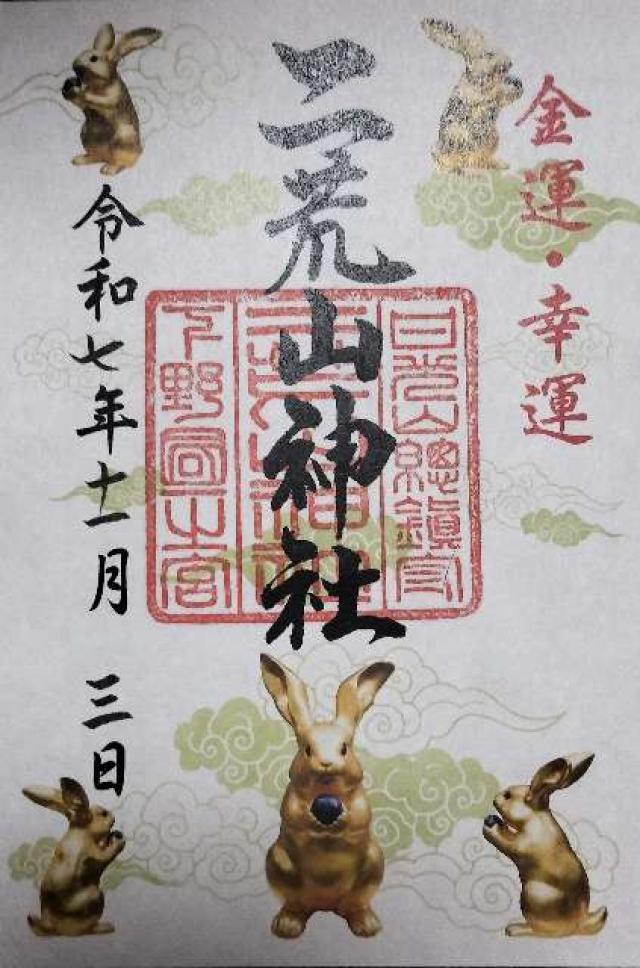 金運・幸運
二荒山神社
日光山總鎮守
二荒山神社
下野國一之宮
令和七年十一月 三日